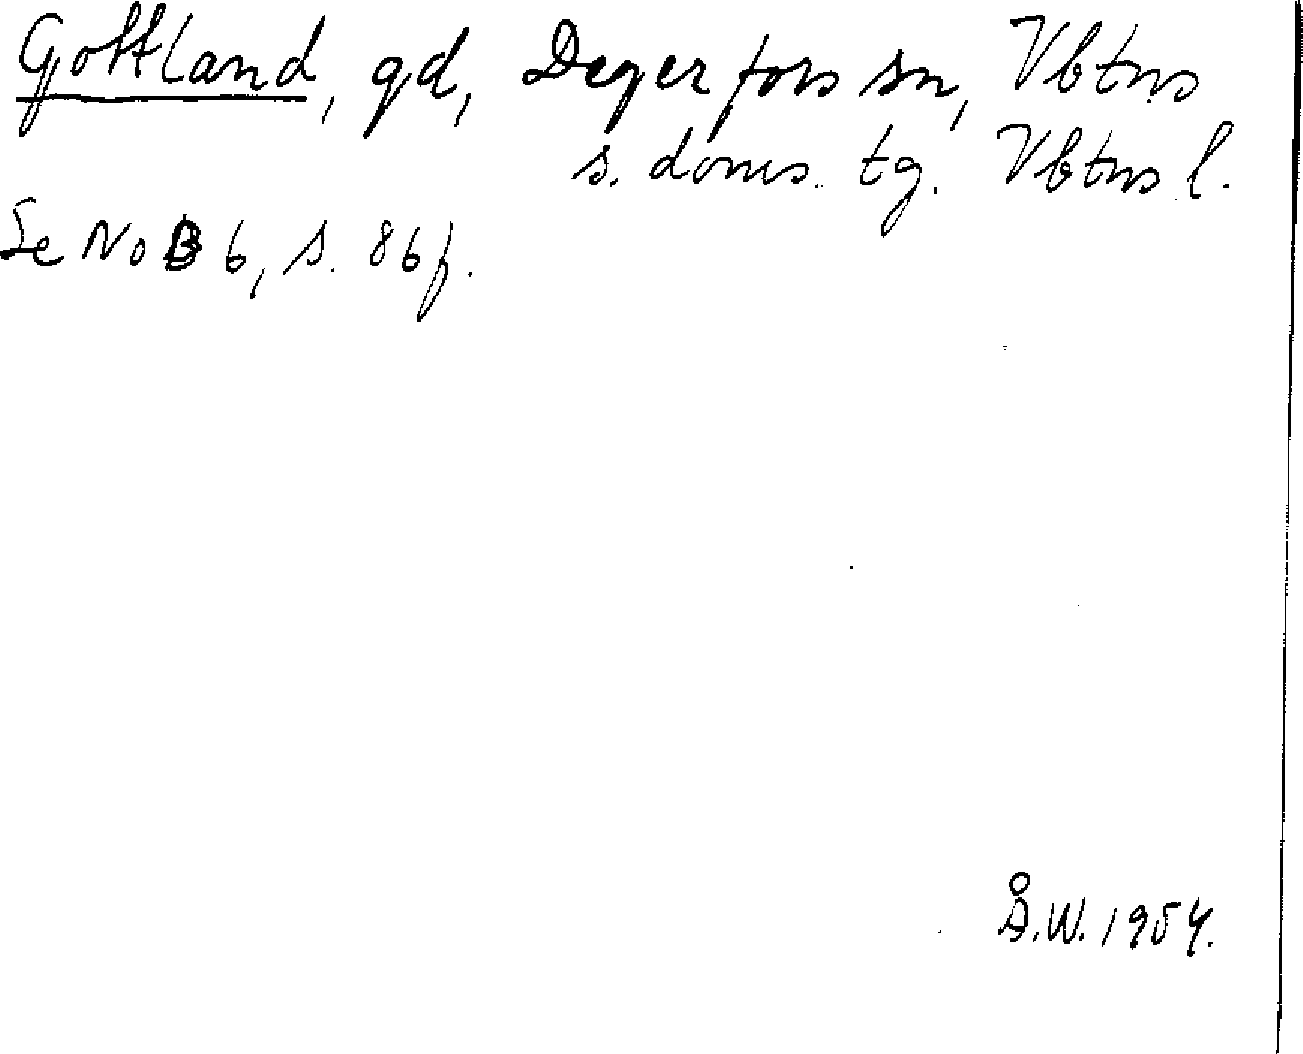 Gottland, gd, Degerfors sn, Vbtns
s. doms. tg. Vbtns l.
Se NoB 6, s. 86 f.
Å.W. 1954.